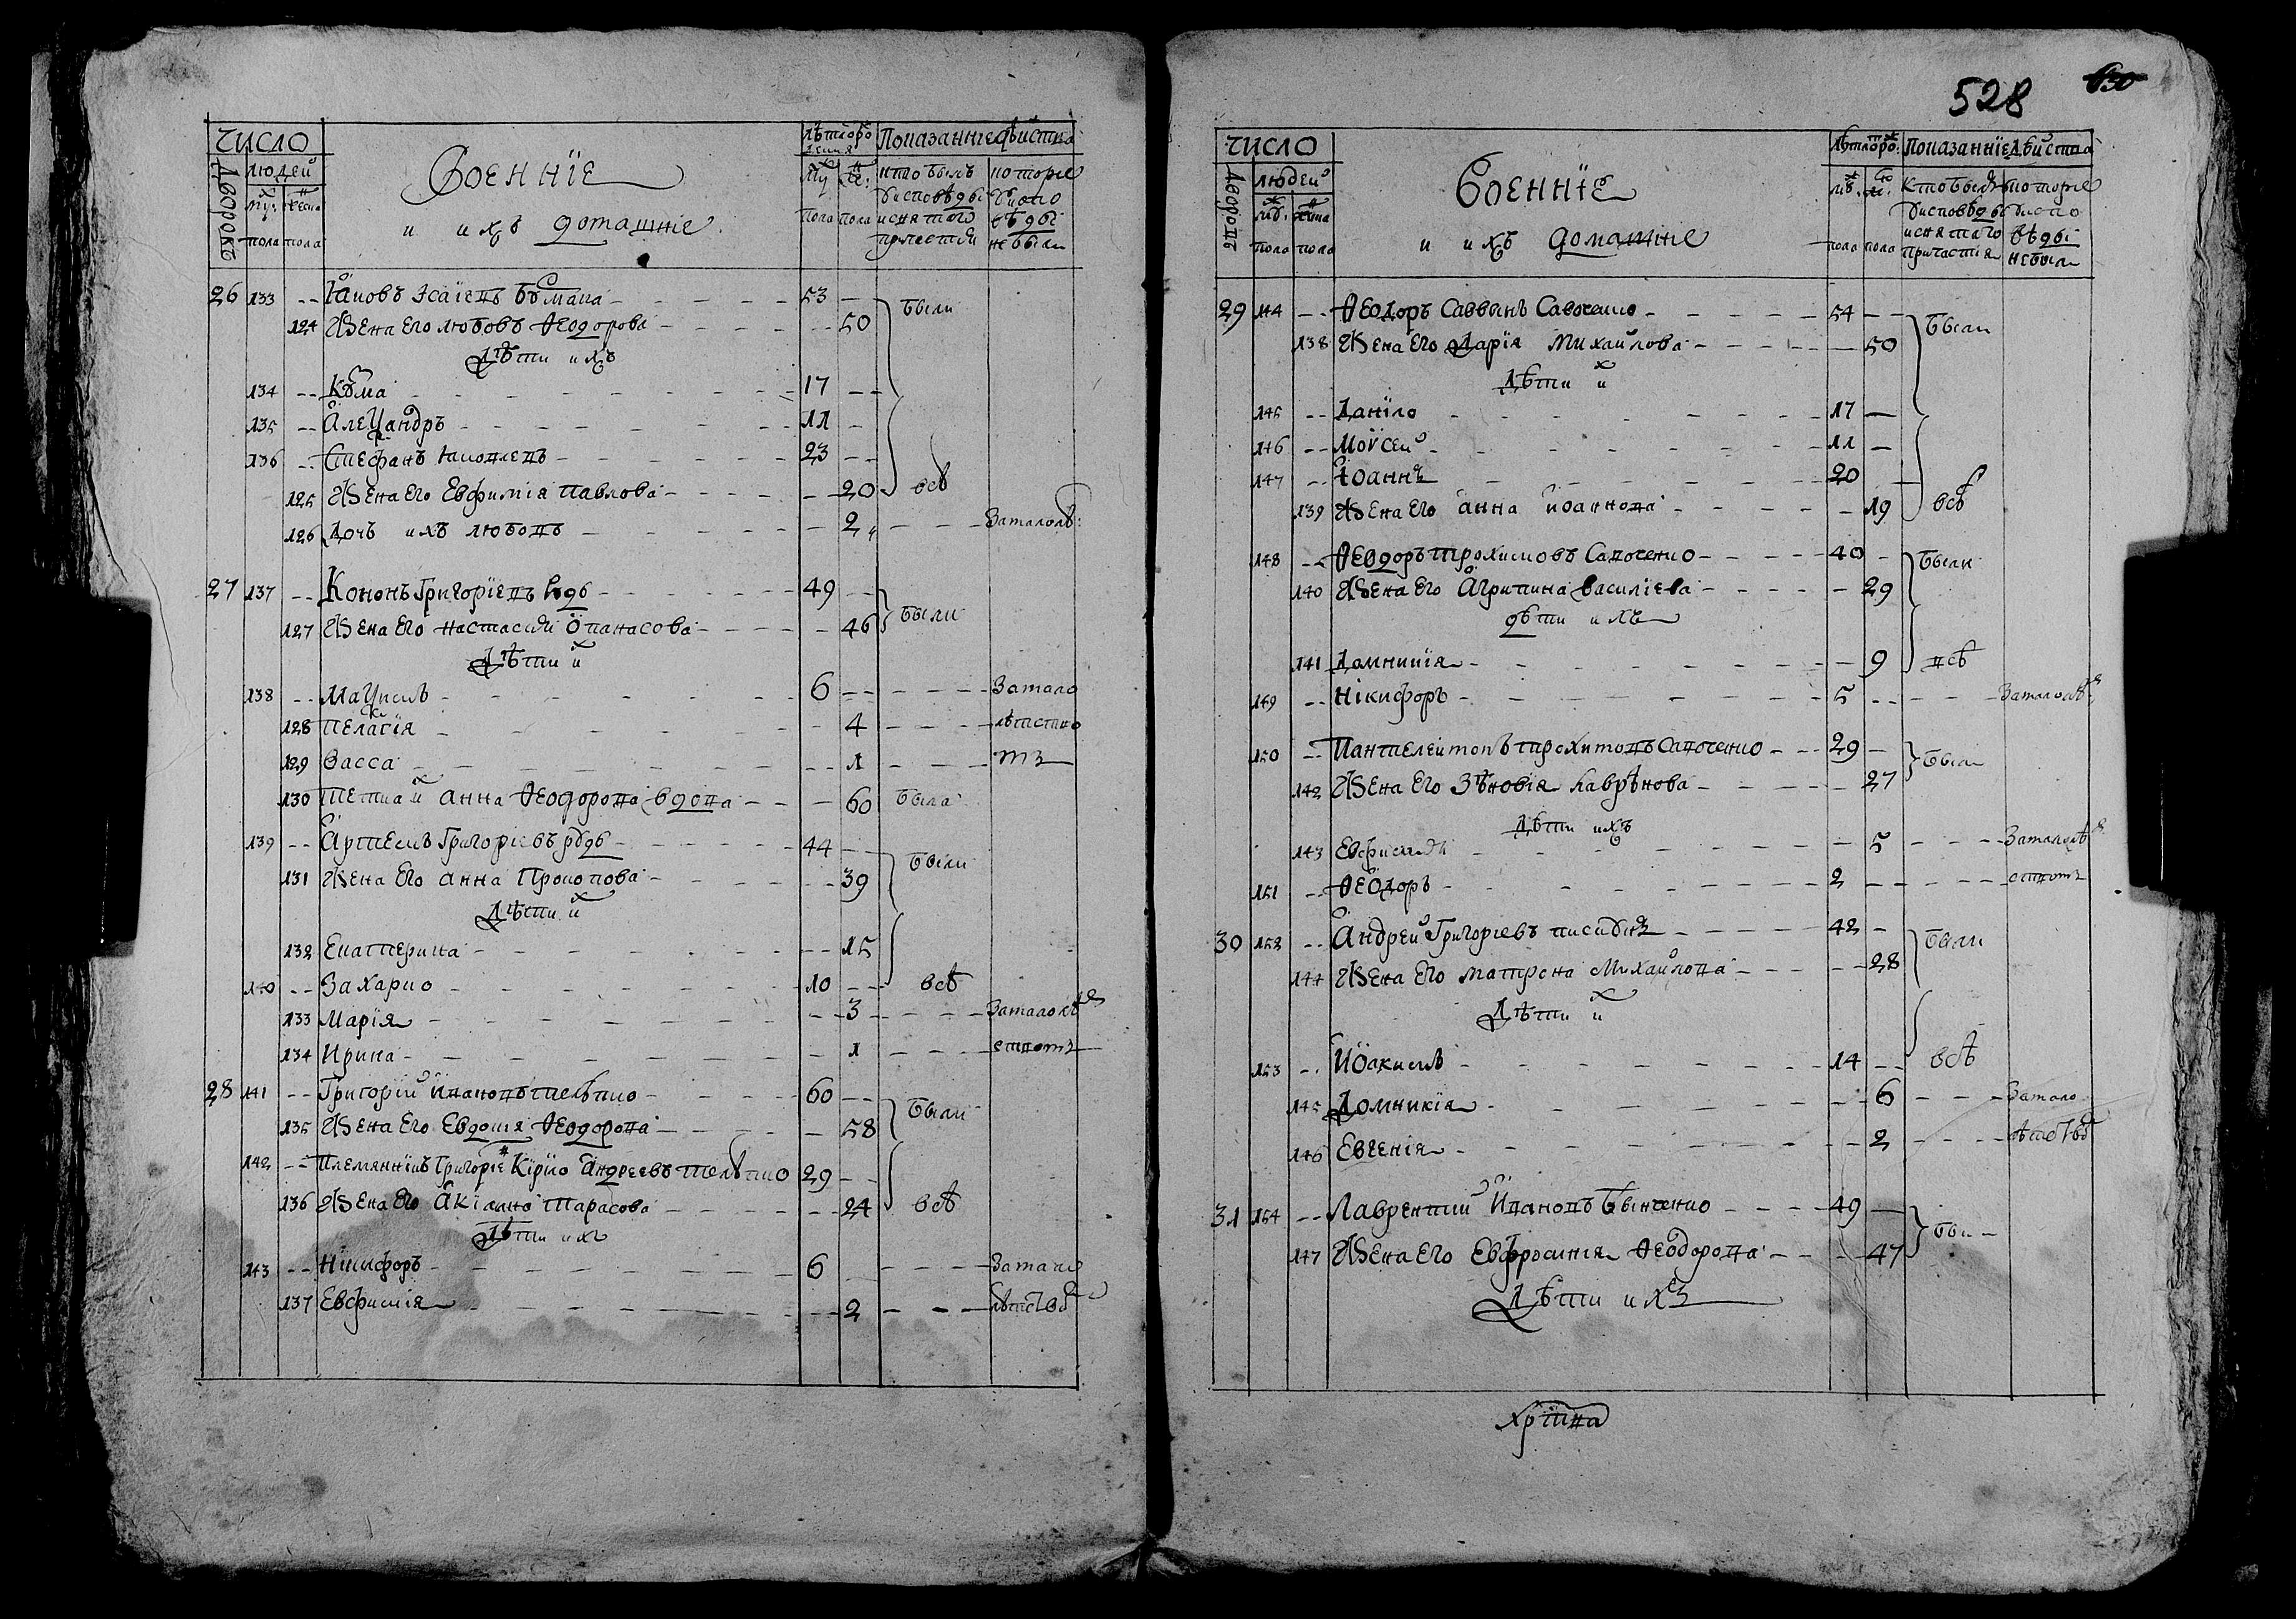 число
дворовъ
людей
муж: пола
женска пола
Военнїе
и ихъ домашніе
лѣт от рожденія
му пола
же: пола
Показаніе дѣйства
кто былъ у исповѣди и святаго причастія
которые у исповѣди не были
26 133 -- Їаковъ Ісаїевъ 53 --
124 Жена его любовъ Ѳеодорова -- 50 были
Дѣти ихъ
134 -- Козма 17 --
135 -- Алеѯандръ 11 --
136 -- Стефанъ 23 --
125 Жена его Евфимія Павлова -- 20 всѣ
126 Дочъ ихъ любовъ -- 2 -- За малолѣ:
27 137 -- Кононъ Григорїевъ 49 --
127 Жена его настасия Опанасова -- 46 были
Дѣти их
138 -- Маѯимъ 6 -- За мало
128 Пелагїя -- 4 -- лѣтство
129 Васса -- 1 -- м з
130 тетка их анна Ѳеодорова вдова -- 60 была
139 -- Артемъ Григорїевъ 44 --
131 Жена его анна Прокопова -- 39 были
Дѣти их
132 Екатерина -- 15
140 -- Захарио 10 -- всѣ
133 Марїя -- 3 -- За малолѣт
134 Ирина -- 1 -- ством
28 141 -- Григорїй Ивановъ 60 --
135 Жена его Евдокия Ѳеодорова -- 58 были
142 -- Племянникъ Григорїев Кірїло Андреевъ 29 --
136 Жена его Тарасова -- 24 всѣ
Дѣти ихъ
143 -- Нікифоръ 6 -- За мало
137 Евфимія -- 2 -- лѣтство
528
630
число
дворовъ
людей
муж. пола
женска пола
Военнїе
и ихъ домашніе
лѣт от рож:
муж. пола
же. пола
Показаннїе дѣйства
кто былъ у исповѣди и святаго причастія
которые у исповѣди не были
29 144 -- Ѳеодоръ Саввинъ Савченко 54 --
138 Жена его Дарїя Михайлова -- 50 были
Дѣти их
145 -- Данїло 17 --
146 -- Моѵсей 11 --
147 -- Іоаннъ 20
139 Жена его анна Иоаннова -- 19 всѣ
148 -- Ѳеодоръ трохимовъ Савченко 40 -
140 Жена его Агрипина василїева -- 29 были
дѣти ихъ
141 Домникія -- 9 всѣ
149 -- Нікифоръ 5 -- За малолѣт
150 -- Пантелеймонъ трохимовъ Савченко 29 -
142 Жена его Зѣновія лаврѣнова -- 27 были
Дѣти ихъ
143 Евфимия -- 5 -- За малолѣт
151 -- Ѳеодоръ 2 -- ством
30 152 -- Андрей Григоріевъ 42 -
144 Жена его матрона Михайлова -- 28 были
Дѣти их
153 -- Иоакимъ 14 -- всѣ
145 Домникїя -- 6 -- За мало
146 Евгенія -- 2 -- лѣтство
31 154 -- Лаврентий Ивановъ 49 --
147 Жена его Евфросинїя Ѳеодорова -- 47 были
Дѣти ихъ